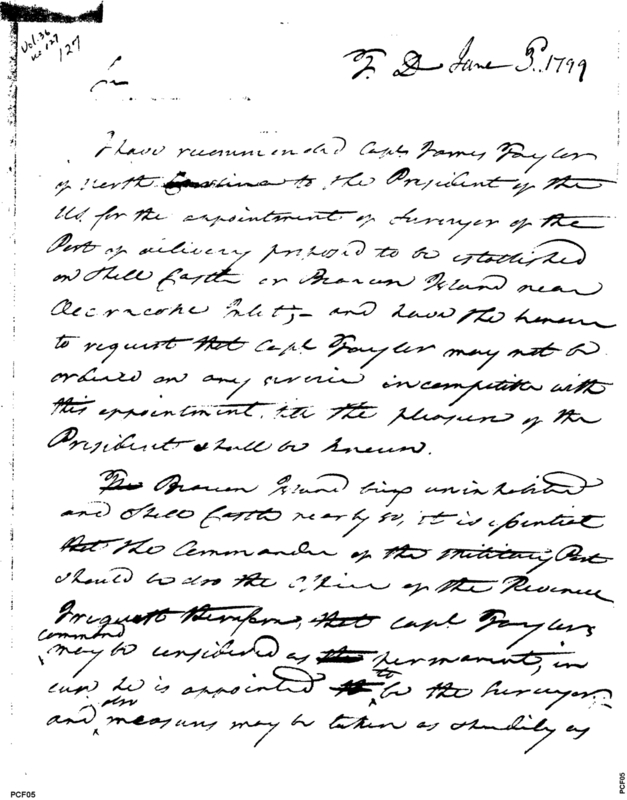 Vol. 36
no 127
127
T. D June 3d. 1799
Sir
I have recommended Capt. James Taylor
of North Carolina to the President of the
US. for the appointment of Surveyor of the
Port of delivery proposed to be established
on Shell Castle or Beacon Island near
Occracoke Inlet; – and have the honour
to request that Capt. Taylor may not be
ordered on any service incompatible with
this appointment till the pleasure of the
President shall be known.
The Beacon Island being uninhabited
and Shell Castle nearly so, it is essential
that the Commander of the Military Post
should be also the Officer of the Revenue
I request therefore, that Capt. Taylors
command
may be considered as the permanent, in
case he is appointed to be the Surveyor
also
and measures may be taken as speedily as
PCF05
PCF05